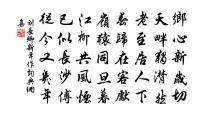 鄉心新歲切
天畔獨潸然
老至居人下
春歸在客先
嶺猿同旦暮
江柳共風煙
已似長沙傅
從今又幾年
劉長卿新年作詞典網